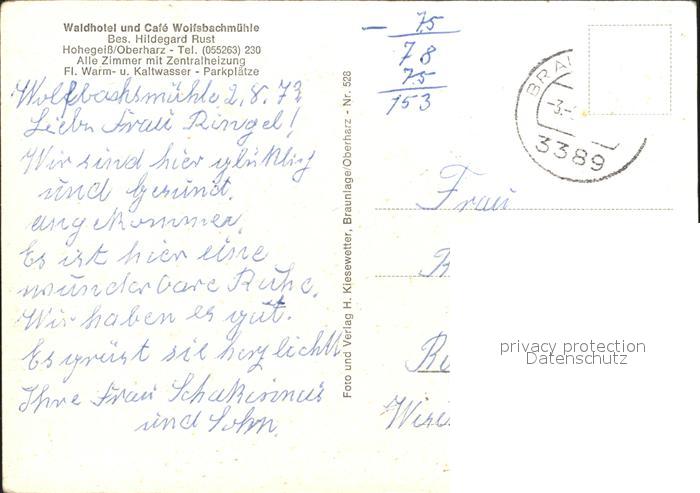 Waldhotel und Café Wolfsbachmühle
Bes. Hildegard Rust
Hohegeiß/Oberharz - Tel. (055263) 230
Alle Zimmer mit Zentralheizung
Fl. Warm- u. Kaltwasser - Parkplätze
Wolfbachsmühle 2.8.73
Liebe Frau Ringel!
Wir sind hier glüklig
und gesund.
angekommen.
Es ist hier eine
wunderbare Ruhe.
Wir haben es gut.
Es grüst sie herzlichst
Ihre Frau
und Sohn.
Foto und Verlag H. Kiesewetter, Braunlage/Oberharz - Nr. 528
- 75
78
75
153
BRA
-3.-
3389
Frau
privacy protection
Datenschutz